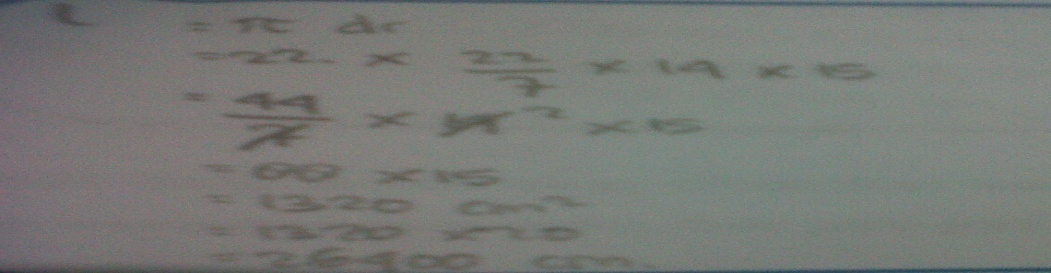 L = π dr
= 22. × 22/7 × 14 × 15
= 44/7 × 14 2 × 15
= 88 × 15
= 1320 cm²
= 1320 × 20
= 26400 cm